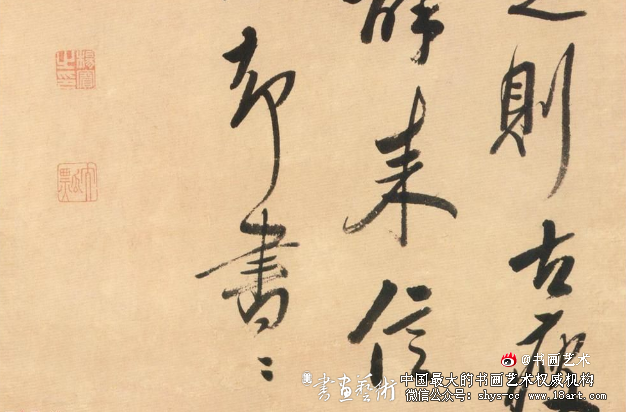 則古
来信
書〻
楊賓之印
大瓢
書畫藝術
@书画艺术
中国最大的书画艺术权威机构
微信公众号: shys-cc www.18art.com